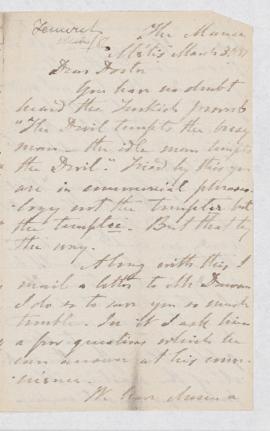 The Manse
Métis March 3
Dear Doctor
You have no doubt
heard the Turkish proverb
"The Devil tempts the busy
man – the idle man tempts
the Devil." Tried by this you
are in commercial phraseo-
logy not the tempter but
the temptee. But that by
the way.
Along with this I
mail a letter to Mr Duncan
I do so to save you so much
trouble. In it I ask him
a few questions which he
can answer at his conve-
nience.
We have